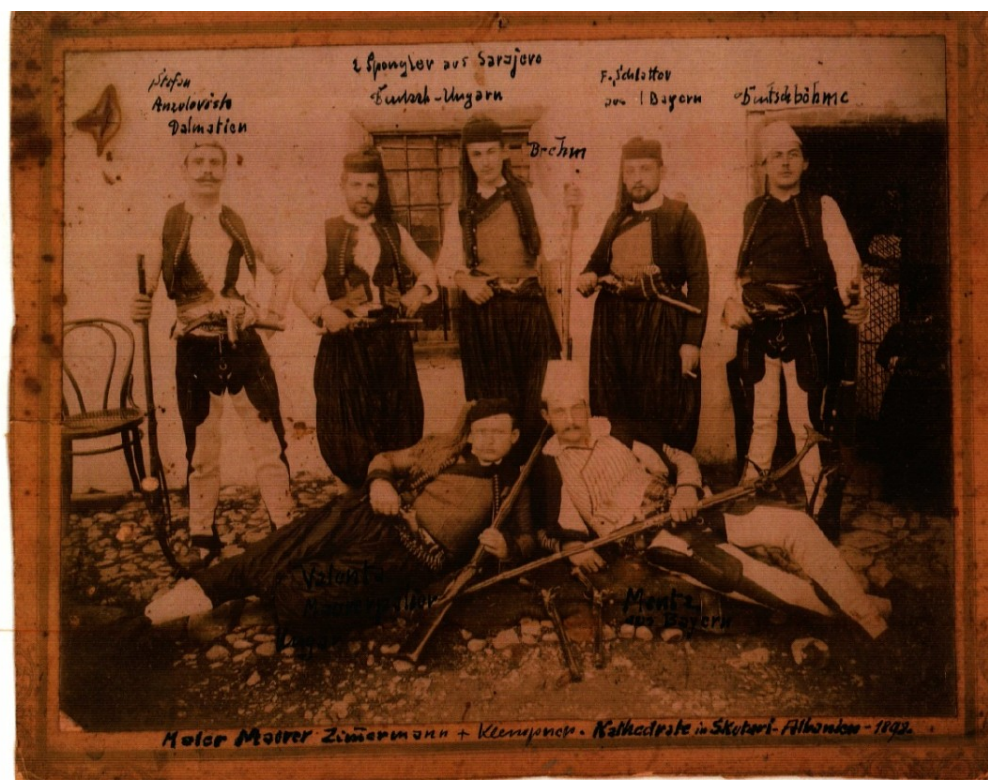 Stefan
Dalmatien
2 Spengler aus Sarajevo
Deutsch-Ungarn
Brehm
F. Schlatter
aus Bayern
Deutschböhme
Valenty
Ungar
Mentz
aus Bayern
Maler Maurer Zimmermann + Klempner - Kathedrale in Skutari - Albanien - 1892.